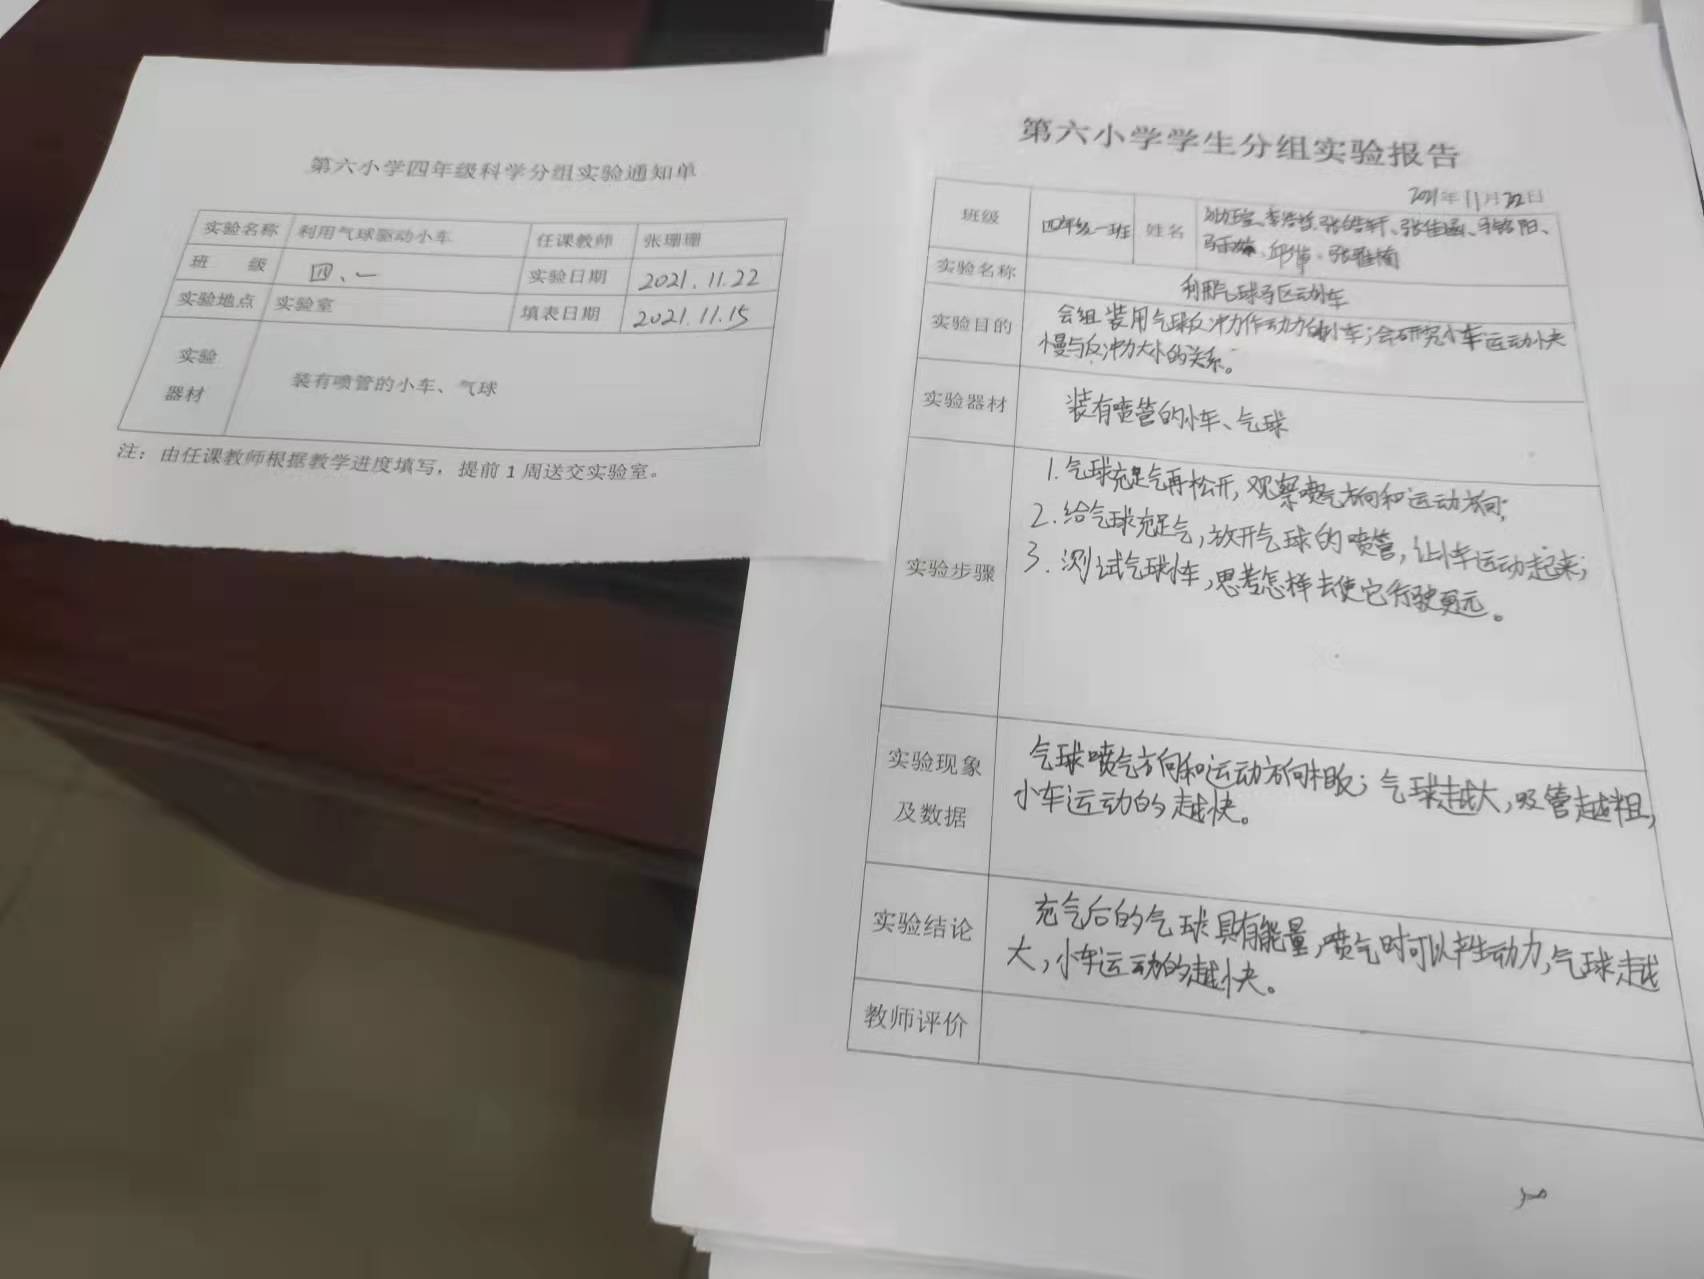 第六小学四年级科学分组实验通知单
实验名称 利用气球驱动小车 任课教师 张珊珊
班 级 四、一 实验日期 2021.11.22
实验地点 实验室 填表日期 2021.11.15
实验
器材
装有喷管的小车、气球
注：由任课教师根据教学进度填写，提前1周送交实验室。
第六小学学生分组实验报告
2021年11月22日
班级 四年级一班 姓名
张佳涵、
邱伟、张雅楠
实验名称 利用气球驱动小车
实验目的 会组装用气球反冲力作动力的小车；会研究小车运动快
慢与反冲力大小的关系。
实验器材 装有喷管的小车、气球
实验步骤
1.气球充足气再松开，观察喷气方向和运动方向；
2.给气球充足气，放开气球的喷管，让小车运动起来；
3.测试气球小车，思考怎样去使它行驶更远。
实验现象
及数据
气球喷气方向和运动方向相反；气球越大，吸管越粗，
小车运动的越快。
实验结论 充气后的气球具有能量，喷气时可以产生动力，气球越
大，小车运动的越快。
教师评价